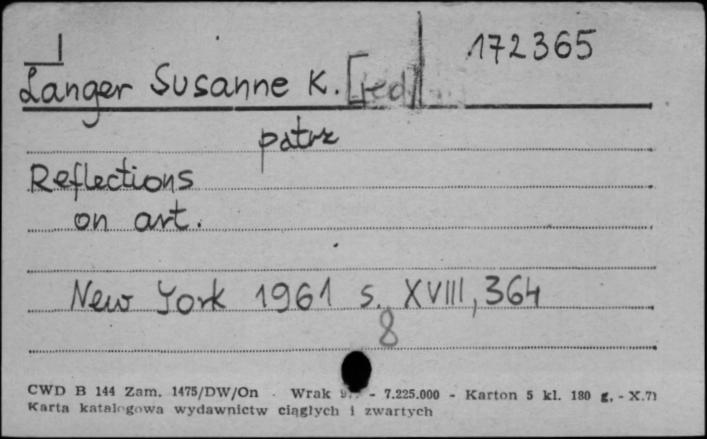 172365
Langer Susanne K. [red]
patrz
Reflections
on art.
New York 1961 s. XVIII, 364
8
CWD B 144 Zam. 1475/DW/On - Wrak - 7.225.000 - Karton 5 kl. 180 g. - X.71
Karta katalogowa wydawnictw ciągłych i zwartych